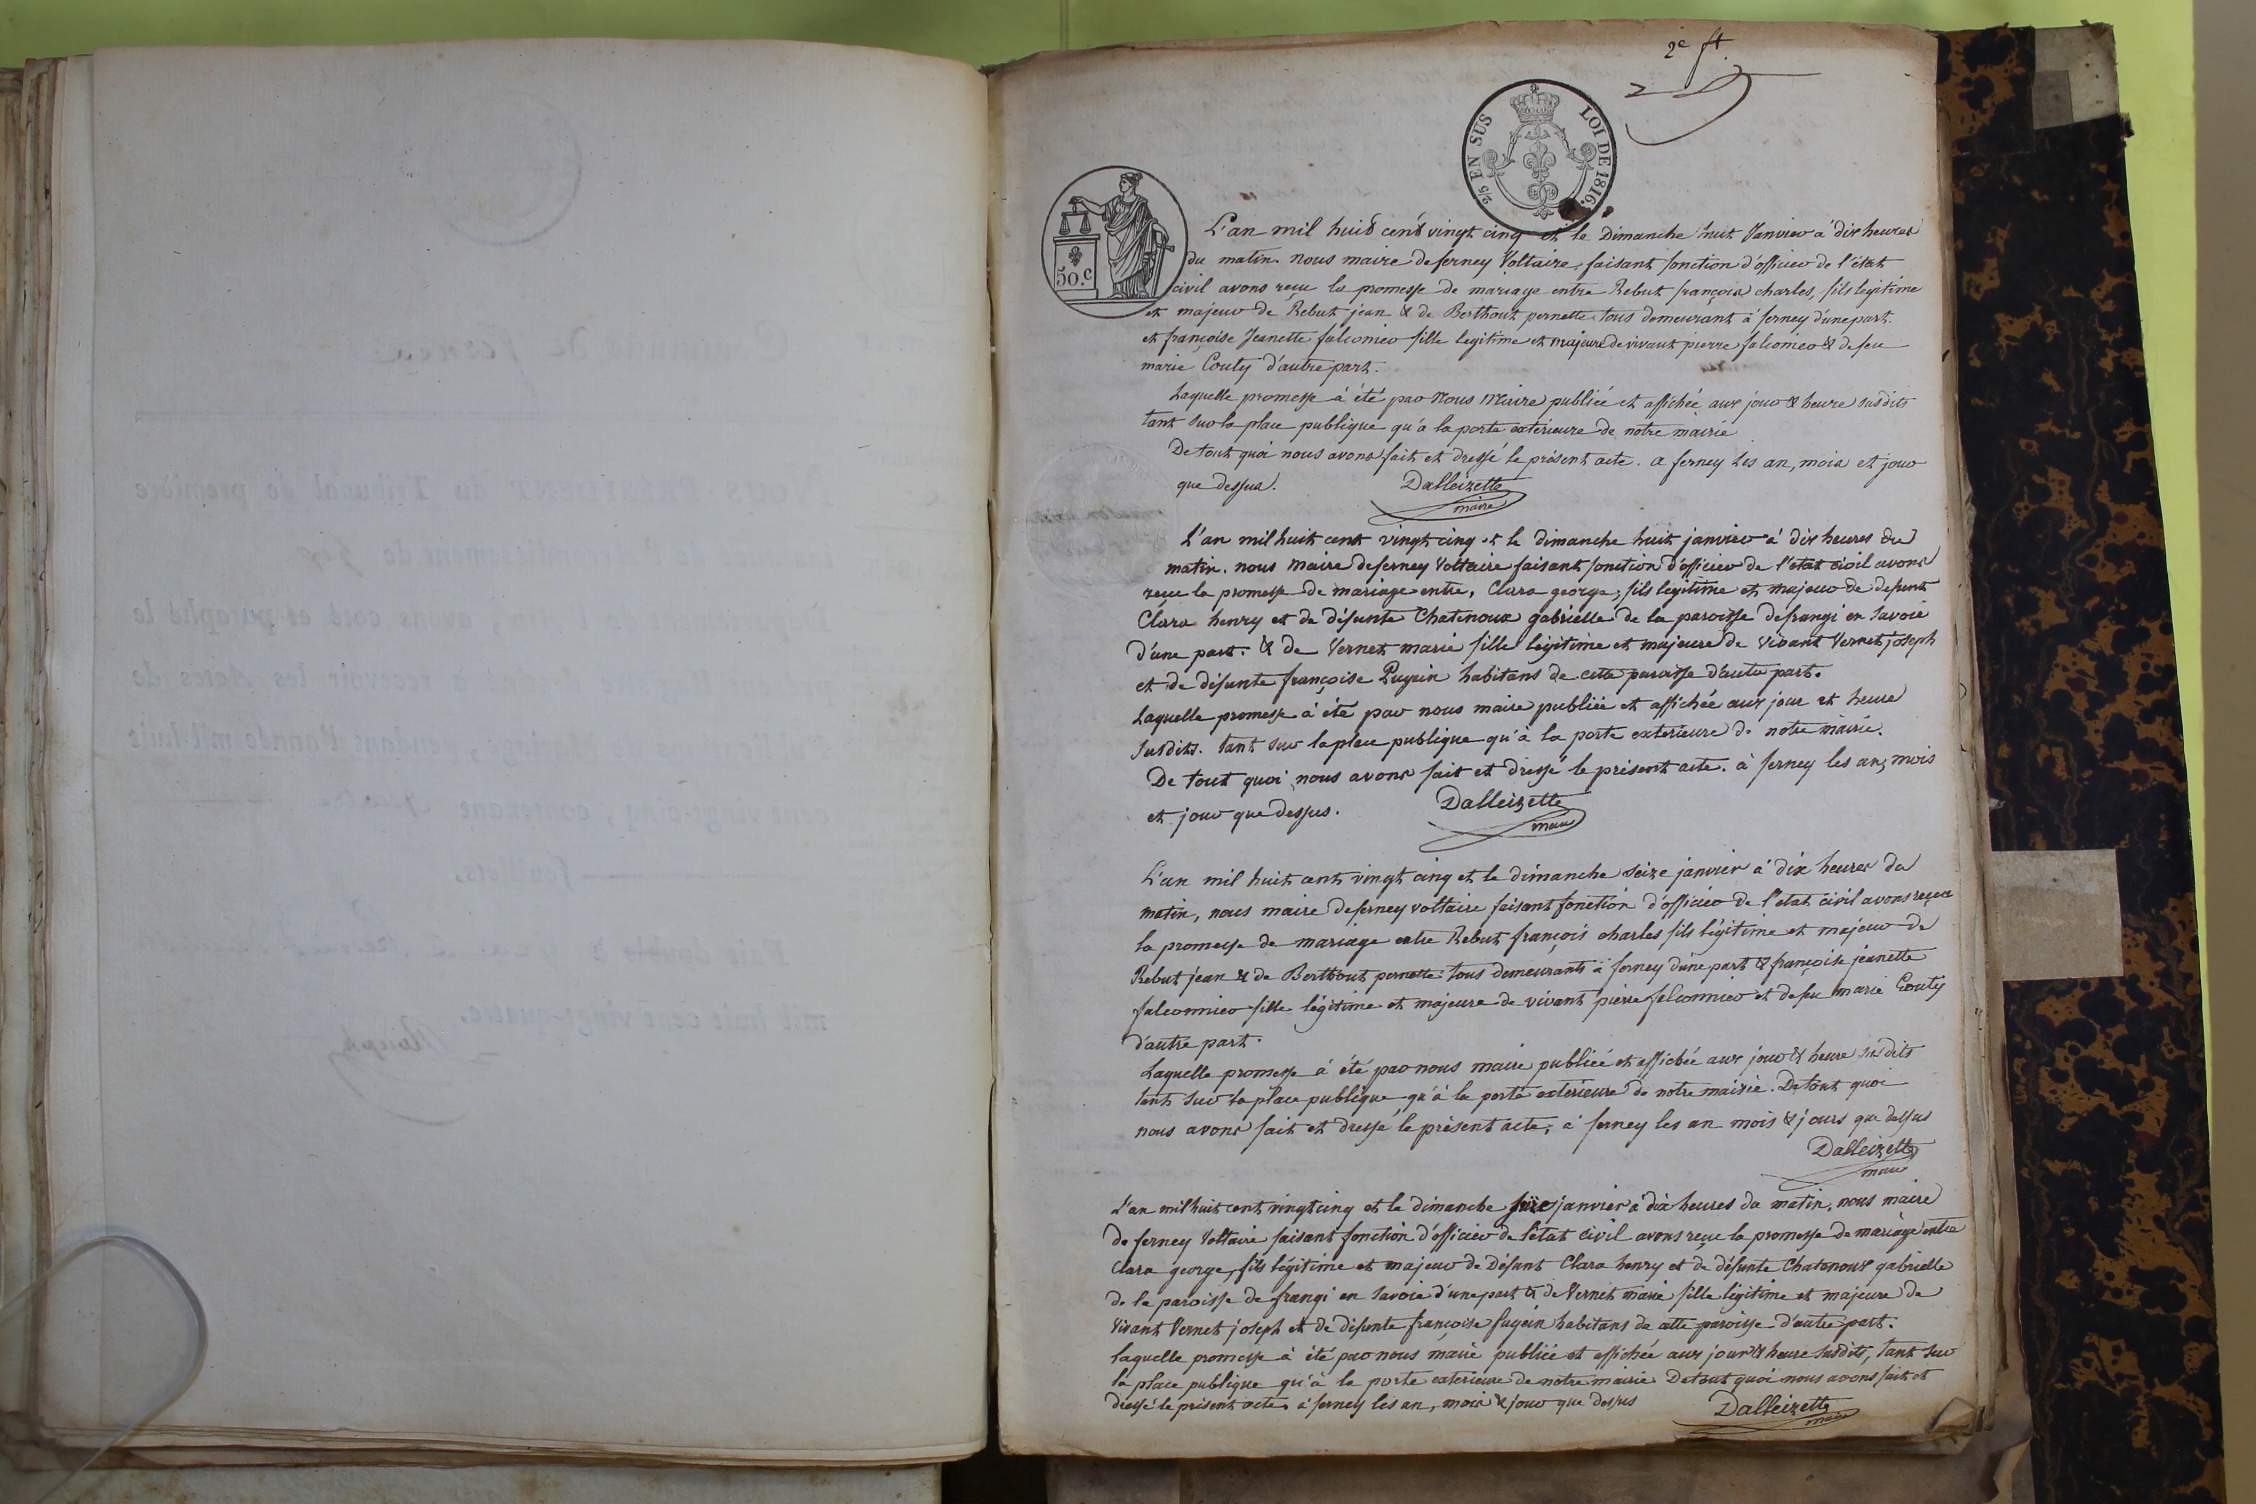 2e ft.
2/5 EN SUS LOI DE 1816.
50.c
L'an mil huit cent vingt cinq et le Dimanche huit Janvier à dix heures
du matin. nous maire de ferney Voltaire, faisant fonction d'officier de l'état
civil avons reçu la promesse de mariage entre Rebut françois charles, fils legitime
et majeur de Rebut jean & de Berthout pernette tous demeurant à ferney d'une part.
et françoise Jeanette falconier fille legitime et majeure de vivant pierre falconier & de feu
marie Couty d'autre part.
Laquelle promesse à été par Nous Maire publiée et affichée aux jour & heure susdits
tant sur la place publique qu'à la porte exterieure de notre mairie
De tout quoi nous avons fait et dressé le présent acte. a ferney les an, mois et jour
que dessus. Dalleizette
maire
L'an mil huit cent vingt cinq et le dimanche huit janvier à dix heures du
matin. nous maire de ferney Voltaire faisant fonction d'officier de l'etat civil avons
reçu la promesse de mariage entre, Clara george, fils legitime et majeur de defunt
Clara henry et de défunte Chatenoux gabrielle de la paroisse de frangi en Savoie
d'une part. & de Vernet marie fille légitime et majeure de vivant Vernet joseph
et de défunte françoise habitans de cette paroisse d'autre part.
Laquelle promesse à été par nous maire publiée et affichée aux jour et heure
susdits. tant sur la place publique qu'à la porte exterieure de notre mairie.
De tout quoi nous avons fait et dressé le présent acte. à ferney les an, mois
et jour que dessus. Dalleizette
maire
L'an mil huit cent vingt cinq et le dimanche seize janvier à dix heures du
matin, nous maire de ferney voltaire faisant fonction d'officier de l'etat civil avons reçu
la promesse de mariage entre Rebut françois charles fils légitime et majeur de
Rebut jean & de Berthout pernette tous demeurants à ferney d'une part & françoise jeanette
falconnier fille légitime et majeure de vivant pierre falconnier et de feu marie Couty
d'autre part.
Laquelle promesse à été par nous maire publiée et affichée aux jour & heure susdits
tant sur la place publique qu'à la porte exterieure de notre mairie. De tout quoi
nous avons fait et dressé le présent acte, à ferney les an mois & jours que dessus
Dalleizette
maire
L'an mil huit cent vingt cinq et le dimanche seize janvier à dix heures du matin, nous maire
de ferney Voltaire faisant fonction d'officier de l'état civil avons reçu la promesse de mariage entre
Clara george, fils légitime et majeur de Défunt Clara henry et de défunte Chatenoux gabrielle
de la paroisse de frangi en Savoie d'une part & de Vernet marie fille légitime et majeure de
vivant Vernet joseph et de défunte françoise habitans de cette paroisse d'autre part.
laquelle promesse à été par nous maire publiée et affichée aux jour & heure susdits, tant sur
la place publique qu'à la porte exterieure de notre mairie De tout quoi nous avons fait et
dressé le présent acte. à ferney les an, mois & jour que dessus Dalleizette
maire